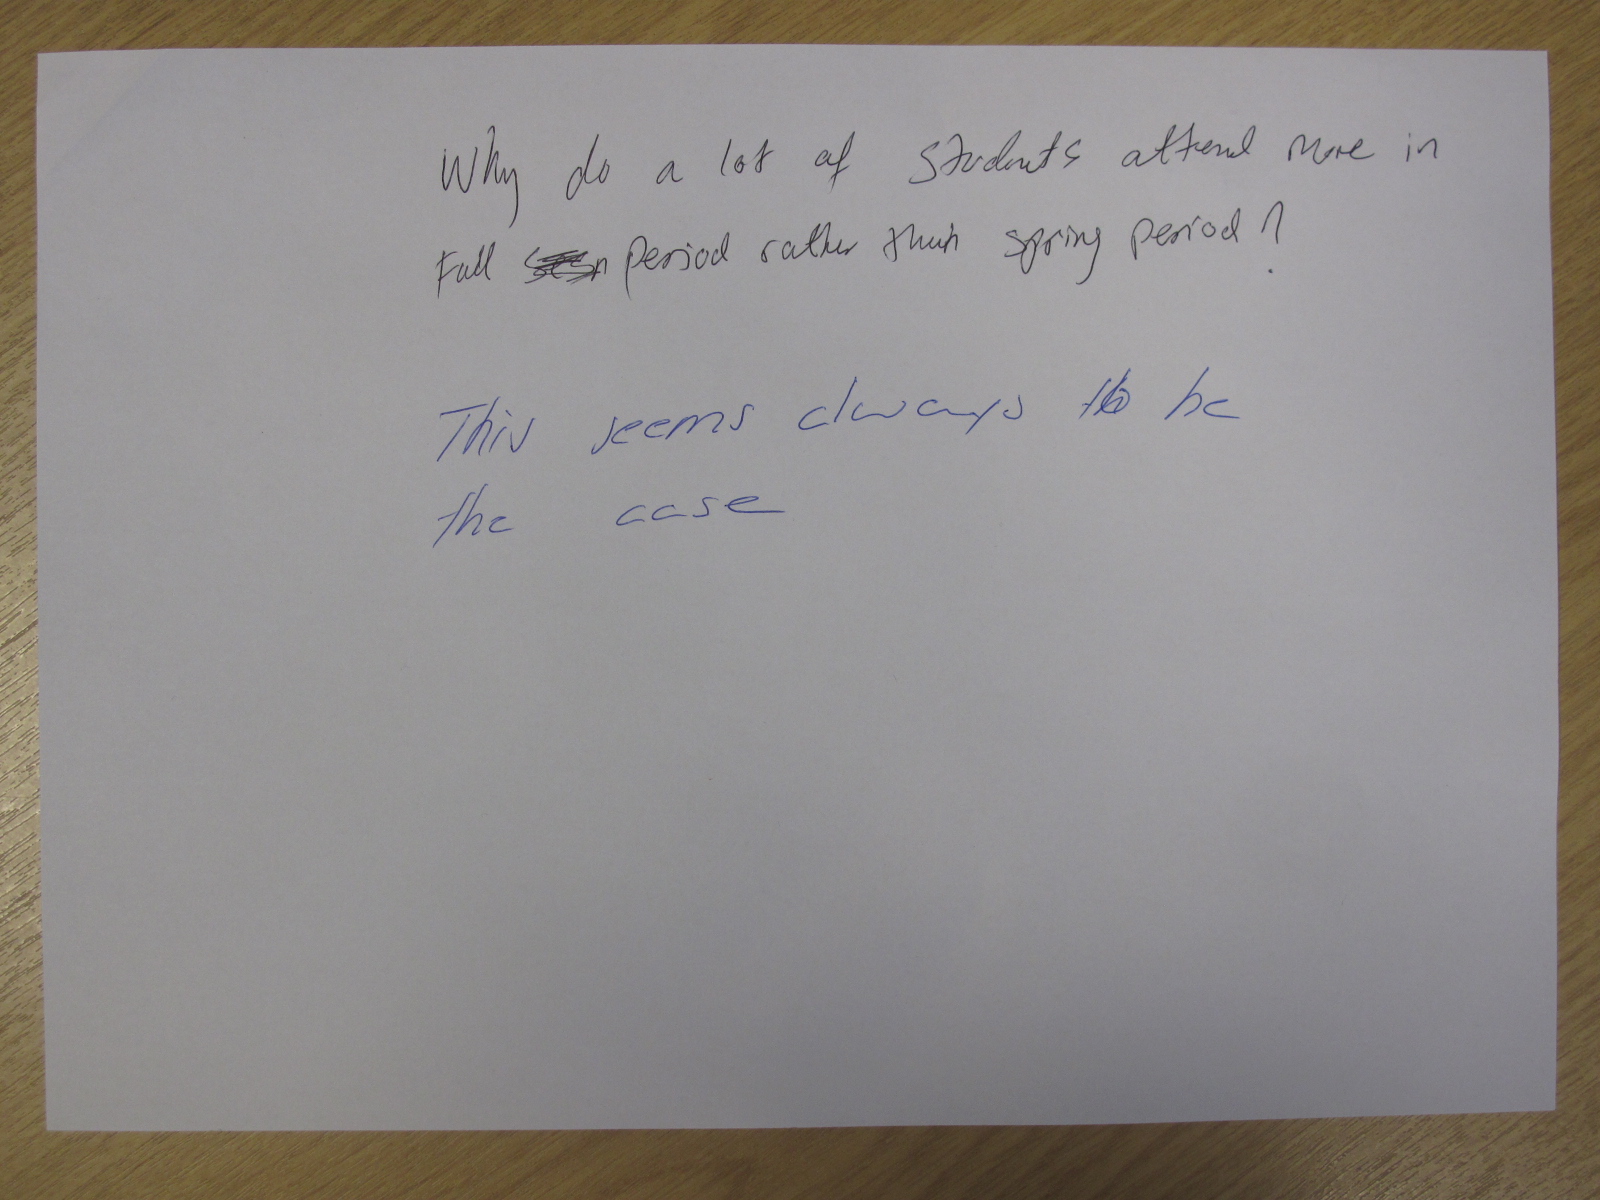 Why do a lot of students attend more in
Fall period rather than spring period?
This seems always to be
the case